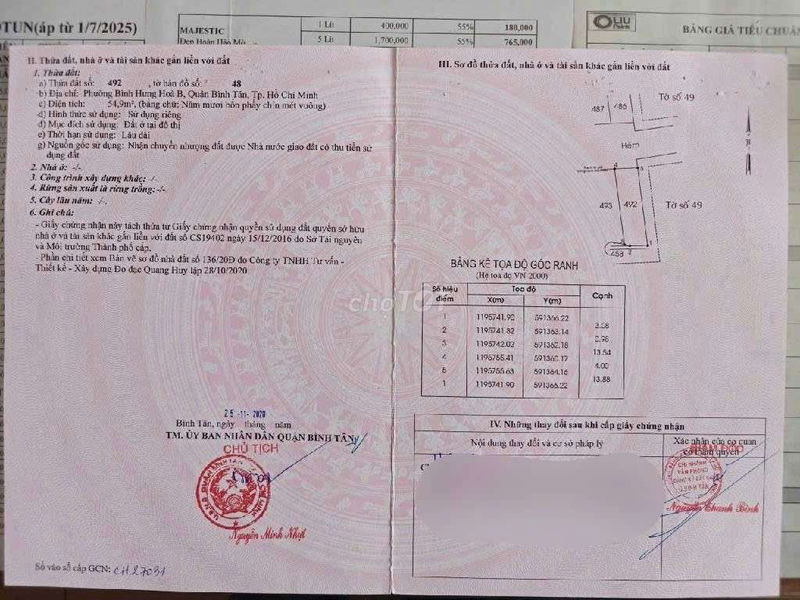 TUN(áp từ 1/7/2025)
MAJESTIC
1 Lít 400,000 55% 180,000
5 Lít 1,700,000 55% 765,000
OLIU
BẢNG GIÁ TIÊU CHUẨ
II. Thửa đất, nhà ở và tài sản khác gắn liền với đất
1. Thửa đất:
a) Thửa đất số: 492 tờ bản đồ số: 48
b) Địa chỉ: Phường Bình Hưng Hoà B, Quận Bình Tân, Tp. Hồ Chí Minh
c) Diện tích: 54,9m², (bằng chữ: Năm mươi bốn phẩy chín mét vuông)
d) Hình thức sử dụng: Sử dụng riêng
đ) Mục đích sử dụng: Đất ở tại đô thị
e) Thời hạn sử dụng: Lâu dài
g) Nguồn gốc sử dụng: Nhận chuyển nhượng đất được Nhà nước giao đất có thu tiền sử
dụng đất
2. Nhà ở: -/-
3. Công trình xây dựng khác: -/-
4. Rừng sản xuất là rừng trồng: -/-
5. Cây lâu năm: -/-
6. Ghi chú:
- Giấy chứng nhận này tách thửa từ Giấy chứng nhận quyền sử dụng đất quyền sở hữu
nhà ở và tài sản khác gắn liền với đất số CS19402 ngày 15/12/2016 do Sở Tài nguyên
và Môi trường Thành phố cấp.
- Phần chi tiết xem Bản vẽ sơ đồ nhà đất số 136/20Đ do Công ty TNHH Tư vấn -
Thiết kế - Xây dựng Đo đạc Quang Huy lập 28/10/2020
25 -11- 2020
Bình Tân, ngày tháng năm
TM. ỦY BAN NHÂN DÂN QUẬN BÌNH TÂN
CHỦ TỊCH
Nguyễn Minh Nhựt
Số vào sổ cấp GCN: CH27031
III. Sơ đồ thửa đất, nhà ở và tài sản khác gắn liền với đất
Tờ số 49
487
486
Hẻm
493
492
Tờ số 49
458
BẢNG KÊ TỌA ĐỘ GÓC RANH
(Hệ tọa độ VN 2000)
Số hiệu điểm Tọa độ Cạnh
X(m) Y(m)
1 1195741.90 591366.22
2 1195741.82 591363.14
3 1195742.02 591362.18
4 1195755.41 591360.17
5 1195755.63 591364.16
1 1195741.90 591366.22
3.08
0.98
13.54
4.00
13.88
chợTỐT
IV. Những thay đổi sau khi cấp giấy chứng nhận
Nội dung thay đổi và cơ sở pháp lý
Xác nhận của cơ quan
có thẩm quyền
CHI NHÁNH
VĂN PHÒNG
Nguyễn Thanh Bình